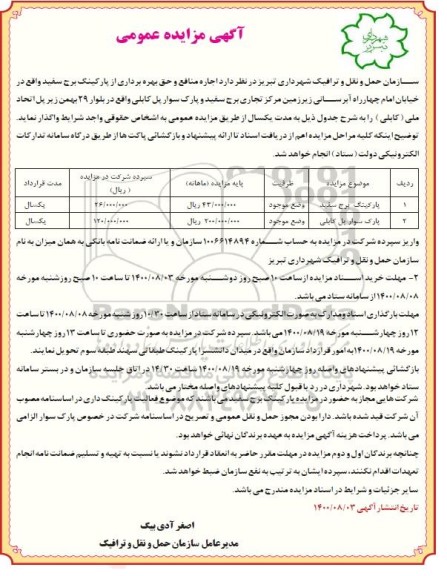 آگهی مزایده عمومی
شهرداری تبریز
سازمان حمل و نقل و ترافیک شهرداری تبریز در نظر دارد اجاره منافع و حق بهره برداری از پارکینگ برج سفید واقع در
خیابان امام چهارراه آبرسانی زیرزمین مرکز تجاری برج سفید و پارک سوار پل کابلی واقع در بلوار ۲۹ بهمن زیر پل اتحاد
ملی (کابلی) را به شرح جدول ذیل به مدت یکسال از طریق مزایده عمومی به اشخاص حقوقی واجد شرایط واگذار نماید.
توضیح اینکه کلیه مراحل مزایده اعم از دریافت اسناد تا ارائه پیشنهاد و بازگشائی پاکت ها از طریق درگاه سامانه تدارکات
الکترونیکی دولت (ستاد) انجام خواهد شد.
ردیف موضوع مزایده ظرفیت پایه مزایده (ماهانه) سپرده شرکت در مزایده (ریال) مدت قرارداد
۱ پارکینگ برج سفید وضع موجود ۴۳/۰۰۰/۰۰۰ ریال ۲۶/۰۰۰/۰۰۰ یکسال
۲ پارک سوار پل کابلی وضع موجود ۲۰۰/۰۰۰/۰۰۰ ریال ۱۲۰/۰۰۰/۰۰۰ یکسال
واریز سپرده شرکت در مزایده به حساب شماره ۱۰۰۶۶۱۴۸۹۴ سازمان و یا ارائه ضمانت نامه بانکی به همان میزان به نام
سازمان حمل و نقل و ترافیک شهرداری تبریز
۲- مهلت خرید اسناد مزایده از ساعت ۱۰ صبح روز دوشنبه مورخه ۱۴۰۰/۰۸/۰۳ تا ساعت ۱۰ صبح روز شنبه مورخه
۱۴۰۰/۰۸/۰۸ از سامانه ستاد می باشد.
مهلت بارگذاری اسناد و مدارک به صورت الکترونیکی در سامانه ستاد از ساعت ۱۰/۳۰ روز شنبه مورخه ۱۴۰۰/۰۸/۰۸ تا ساعت
۱۲ روز چهارشنبه مورخه ۱۴۰۰/۰۸/۱۹ می باشد. سپرده شرکت در مزایده به صورت حضوری تا ساعت ۱۳ روز چهارشنبه
مورخه ۱۴۰۰/۰۸/۱۹ به امور قرارداد سازمان واقع در میدان دانشسرا پارکینگ طبقاتی سهند طبقه سوم تحویل نمایند.
بازگشائی پیشنهادهای واصله روز چهارشنبه مورخه ۱۴۰۰/۰۸/۱۹ ساعت ۱۴/۳۰ در اتاق جلسه سازمان و در بستر سامانه
ستاد خواهد بود. شهرداری در رد یا قبول کلیه پیشنهادهای واصله مختار می باشد.
شرکت هایی مجاز به حضور در مزایده پارکینگ برج سفید می باشند که موضوع فعالیت پارکینگ داری در اساسنامه مصوب
آن شرکت قید شده باشد. دارا بودن مجوز حمل و نقل عمومی و تصریح در اساسنامه شرکت در خصوص پارک سوار الزامی
می باشد. پرداخت هزینه آگهی مزایده به عهده برندگان نهائی خواهد بود.
چنانچه برندگان اول و دوم مزایده در مهلت مقرر حاضر به انعقاد قرارداد نشوند یا نسبت به تهیه و تسلیم ضمانت نامه انجام
تعهدات اقدام نکنند، سپرده ایشان به ترتیب به نفع سازمان ضبط خواهد شد.
سایر جزئیات و شرایط در اسناد مزایده مندرج می باشد.
تاریخ انتشار آگهی ۱۴۰۰/۰۸/۰۳
اصغر آدی بیک
مدیرعامل سازمان حمل و نقل و ترافیک